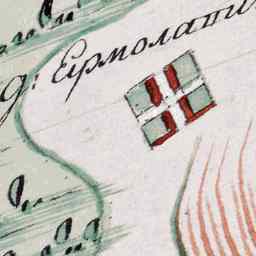 д: Ермолати